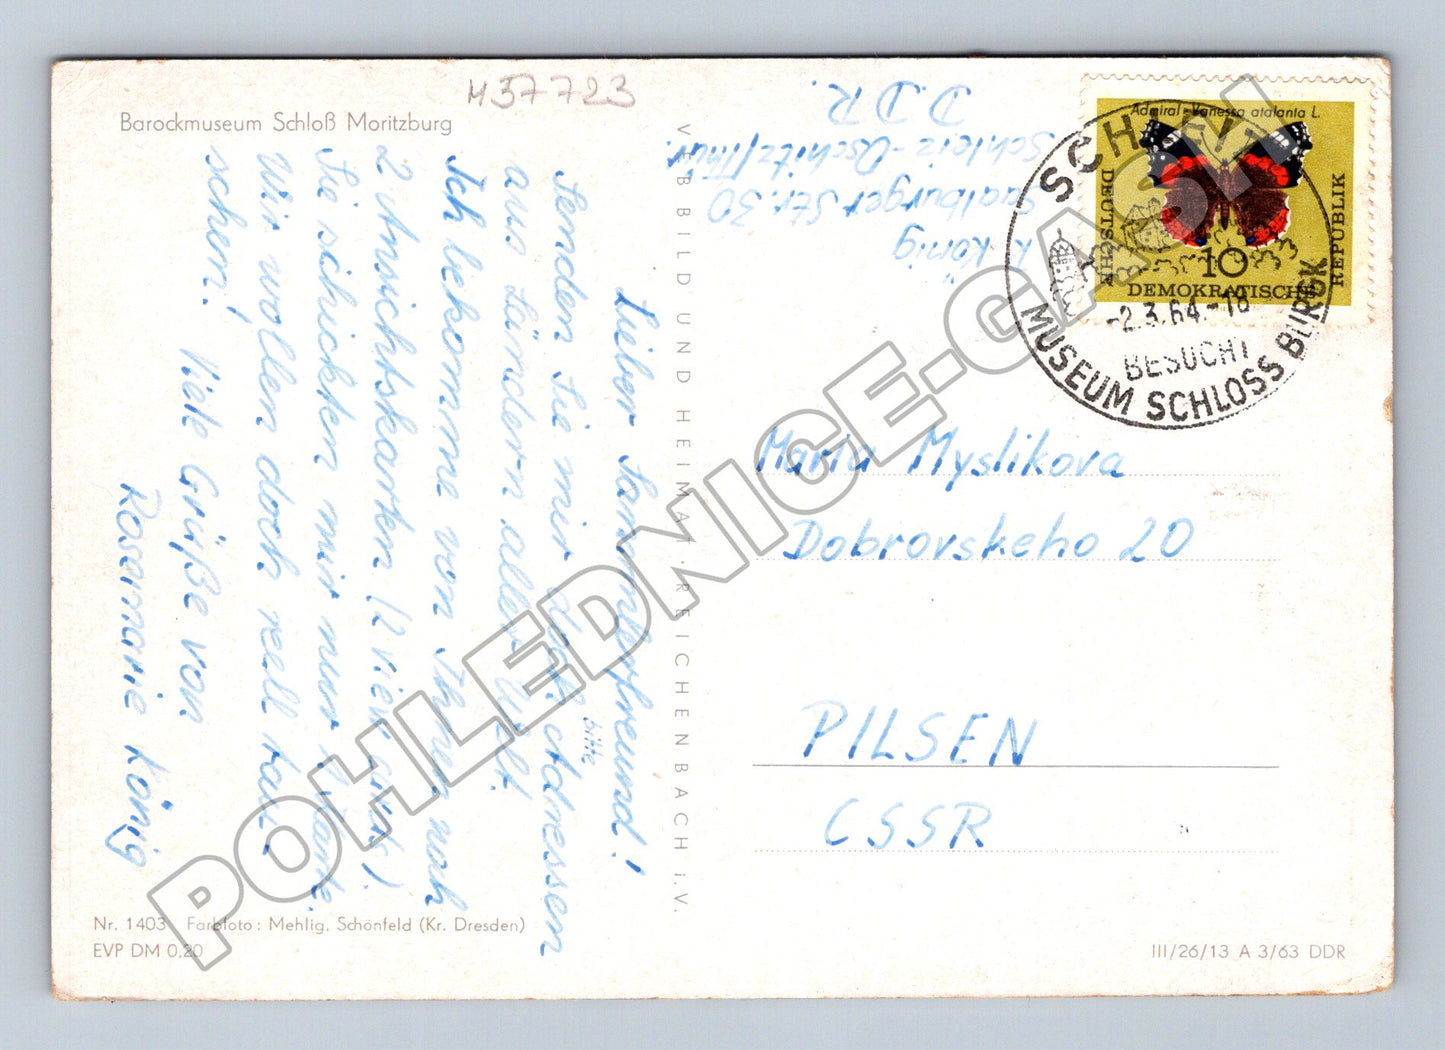 M37723
Barockmuseum Schloß Moritzburg
Lieber Sammlerfreund!
Senden Sie mir doch Adressen
bitte
aus Ländern aller Welt.
Ich bekomme von Ihnen noch
2 Ansichtskarten
Sie schickten mir nur 1 Karte.
Wir wollen doch reell tau-
schen!
Viele Grüße von
Rosemarie König
Nr. 1403 Farbfoto: Mehlig, Schönfeld (Kr. Dresden)
EVP DM 0,20
VEB BILD UND HEIMAT REICHENBACH i.V.
R. König
Saalburger Str. 30
Schleiz-Oschitz/Thür.
D.D.R.
Admiral - Vanessa atalanta L.
DEUTSCHE
DEMOKRATISCHE
REPUBLIK
10
SCHLEIZ
-2.3.64.-18
BESUCHT
MUSEUM SCHLOSS BURGK
Maria Myslikova
Dobrovskeho 20
PILSEN
CSSR
III/26/13 A 3/63 DDR
POHLEDNICE-GASH